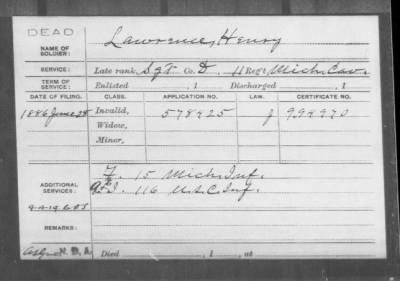 DEAD
NAME OF SOLDIER: Lawrence, Henry
SERVICE: Late rank, Sgt Co. D, 11 Reg't Mich. Cav.
TERM OF SERVICE: Enlisted , 1 Discharged , 1
DATE OF FILING. CLASS. APPLICATION NO. LAW. CERTIFICATE NO.
1886 June 28 Invalid, 578425 g 994970
Widow,
Minor,
ADDITIONAL SERVICES: F. 15 Mich. Inf.
I. 116 U.S.C. Inf.
REMARKS:
Died , 1 , at